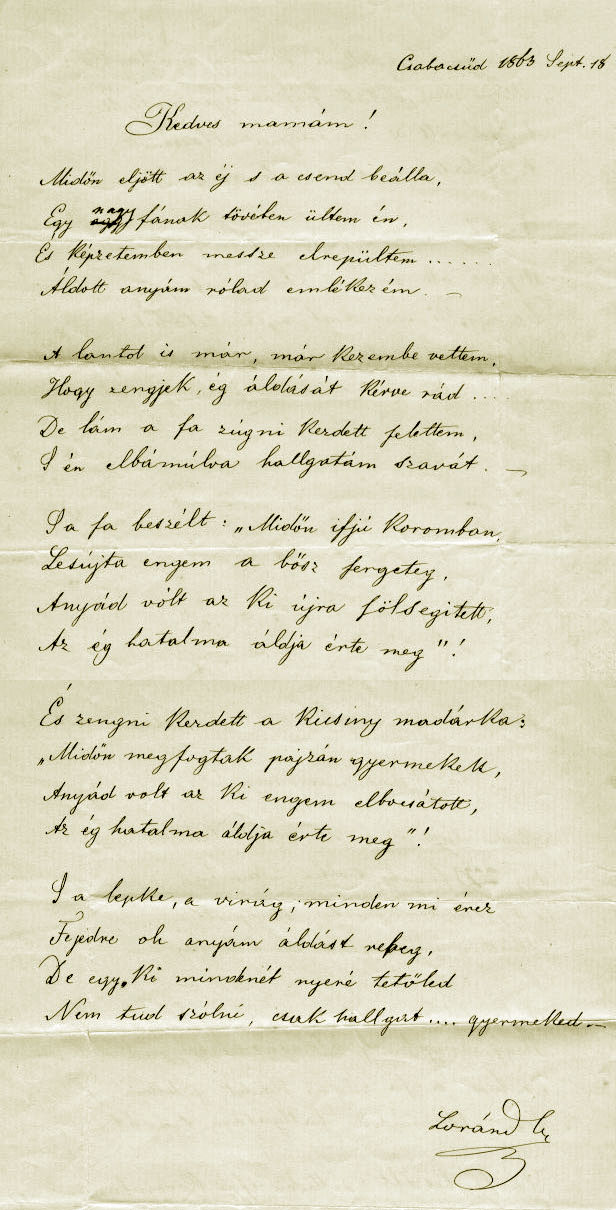 Csabacsüd 1863 Sept. 18
Kedves mamám!
Midőn eljött az éj s a csend beálla,
Egy nagy fának tövében ültem én,
És képzetemben messze elrepültem......
Áldott anyám rólad emlékezém. —
A lantot is már, már kezembe vettem,
Hogy zengjek, ég áldását kérve rád ...
De lám a fa zúgni kezdett felettem,
S én elbámúlva hallgatám szavát. —
S a fa beszélt: „Midőn ifjú koromban,
Lesújta engem a bősz fergeteg,
Anyád vólt az ki újra fölsegitett,
Az ég hatalma áldja érte meg"!
És zengni kezdett a kicsiny madárka:
„Midőn megfogtak pajzán gyermekek,
Anyád volt az ki engem elbocsátott,
Az ég hatalma áldja érte meg"!
S a lepke, a virág, minden mi érez
Fejedre oh anyám áldást rebeg,
De egy, ki mindenét nyeré tetőled
Nem tud szólni, csak hallgat .... gyermeked —
Loránd